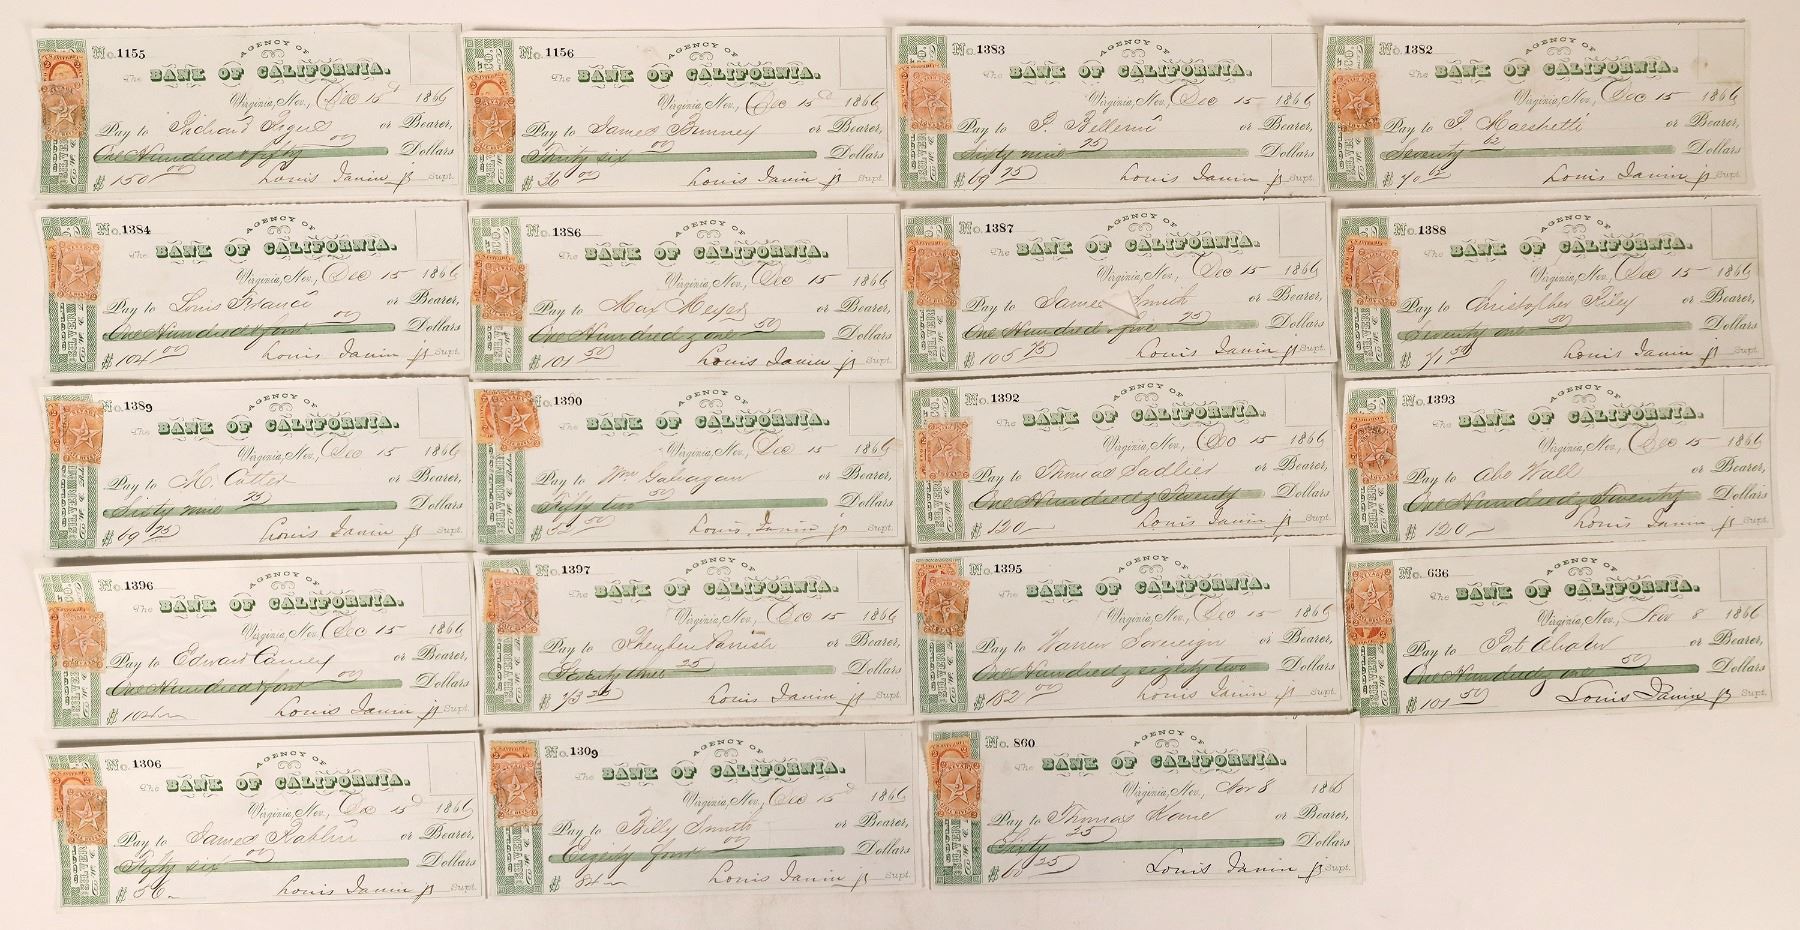 No. 1155
AGENCY OF
The BANK OF CALIFORNIA.
Virginia, Nev., Dec 15d 1866
Pay to or Bearer,
One Hundred & fifty 00 Dollars
$ 150 00 Louis Janin jr Supt.
No. 1156
AGENCY OF
The BANK OF CALIFORNIA.
Virginia, Nev., Dec 15d 1866
Pay to James or Bearer,
Thirty six 00 Dollars
$ 36 00 Louis Janin jr Supt.
No. 1383
AGENCY OF
The BANK OF CALIFORNIA.
Virginia, Nev., Dec 15 1866
Pay to or Bearer,
Sixty nine 75 Dollars
$ 69 75 Louis Janin jr Supt.
No. 1382
AGENCY OF
The BANK OF CALIFORNIA.
Virginia, Nev., Dec 15 1866
Pay to or Bearer,
Seventy 62 Dollars
$ 70 62 Louis Janin jr Supt.
No. 1384
AGENCY OF
The BANK OF CALIFORNIA.
Virginia, Nev., Dec 15 1866
Pay to Louis or Bearer,
One Hundred & four 00 Dollars
$ 104 00 Louis Janin jr Supt.
No. 1386
AGENCY OF
The BANK OF CALIFORNIA.
Virginia, Nev., Dec 15 1866
Pay to Max Meyer or Bearer,
One Hundred & one 50 Dollars
$ 101 50 Louis Janin jr
No. 1387
AGENCY OF
The BANK OF CALIFORNIA.
Virginia, Nev., Dec 15 1866
Pay to James Smith or Bearer,
One Hundred & five 75 Dollars
$ 105 75 Louis Janin jr Supt.
No. 1388
AGENCY OF
The BANK OF CALIFORNIA.
Virginia, Nev., Dec 15 1866
Pay to Christopher Riley or Bearer,
Seventy one 50 Dollars
$ 71 50 Louis Janin jr Supt.
No. 1389
AGENCY OF
The BANK OF CALIFORNIA.
Virginia, Nev., Dec 15 1866
Pay to M. Cotter or Bearer,
Sixty nine 75 Dollars
$ 69 75 Louis Janin jr Supt.
No. 1390
AGENCY OF
The BANK OF CALIFORNIA.
Virginia, Nev., Dec 15 1866
Pay to Wm Gahagan or Bearer,
Fifty two 50 Dollars
$ 52 50 Louis Janin jr Supt.
No. 1392
AGENCY OF
The BANK OF CALIFORNIA.
Virginia, Nev., Dec 15 1866
Pay to Thomas Sadlier or Bearer,
One Hundred & Twenty Dollars
$ 120 Louis Janin jr Supt.
No. 1393
AGENCY OF
The BANK OF CALIFORNIA.
Virginia, Nev., Dec 15 1866
Pay to Abe Wall or Bearer,
One Hundred & Twenty Dollars
$ 120 Louis Janin jr Supt.
No. 1396
AGENCY OF
The BANK OF CALIFORNIA.
Virginia, Nev., Dec 15 1866
Pay to Edward Carney or Bearer,
One Hundred & four 00 Dollars
$ 104 Louis Janin jr Supt.
No. 1397
AGENCY OF
The BANK OF CALIFORNIA.
Virginia, Nev., Dec 15 1866
Pay to Parrish or Bearer,
Seventy three 25 Dollars
$ 73 25 Louis Janin jr Supt.
No. 1395
AGENCY OF
The BANK OF CALIFORNIA.
Virginia, Nev., Dec 15 1866
Pay to Warren Sovereign or Bearer,
One Hundred & eighty two Dollars
$ 182 00 Louis Janin jr Supt.
No. 636
AGENCY OF
The BANK OF CALIFORNIA.
Virginia, Nev., Nov 8 1866
Pay to Pat or Bearer,
One Hundred & one 50 Dollars
$ 101 50 Louis Janin jr Supt.
No. 1306
AGENCY OF
The BANK OF CALIFORNIA.
Virginia, Nev., Dec 15d 1866
Pay to James Rablin or Bearer,
Fifty six 00 Dollars
$ 56 Louis Janin jr Supt.
No. 1309
AGENCY OF
The BANK OF CALIFORNIA.
Virginia, Nev., Dec 15d 1866
Pay to Billy Smith or Bearer,
Eighty four 00 Dollars
$ 84 Louis Janin jr Supt.
No. 860
AGENCY OF
The BANK OF CALIFORNIA.
Virginia, Nev., Nov 8 1866
Pay to Thomas Kane or Bearer,
Sixty 25 Dollars
$ 60 25 Louis Janin jr Supt.